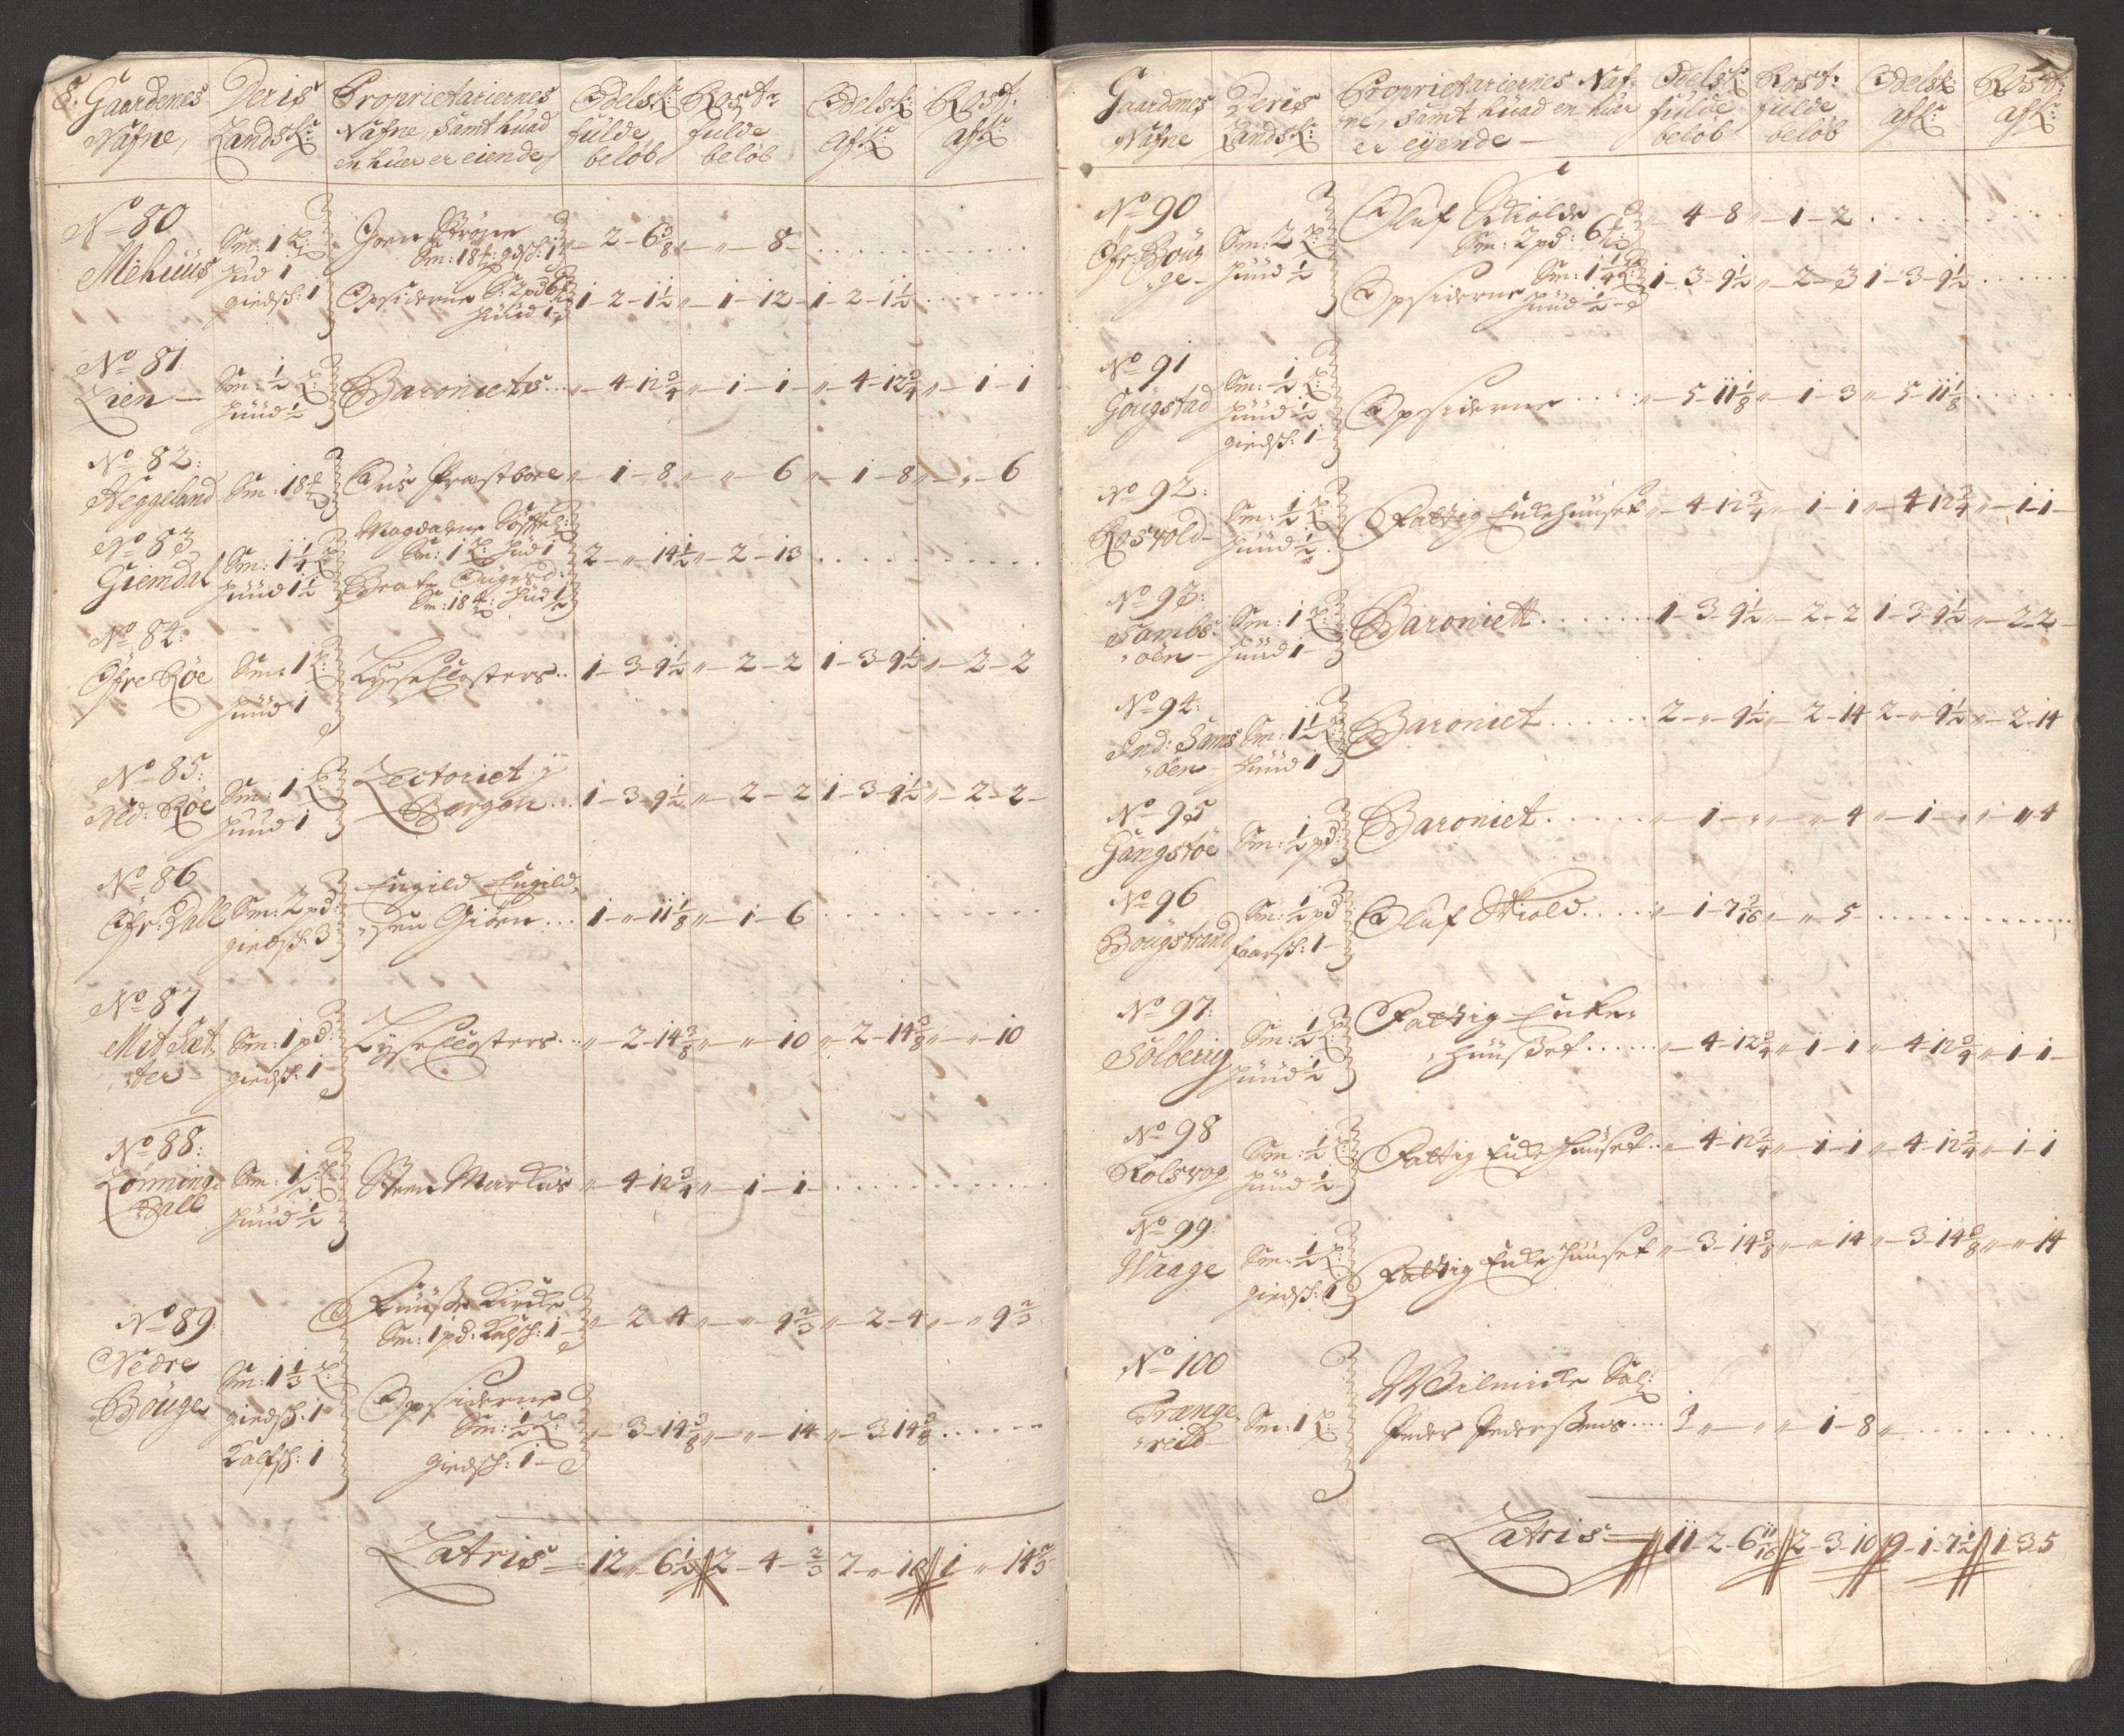 Gaardenes Nafne, Deris Landsk: Proprietariernes Nafne, Samt huad en huer er eiende Odelsk: fulde beløb Rost: fulde beløb Odelsk: afk: Rost: afk:
No 80
Mehuus Sm: 1 L:
huud 1
giedsk: 1
Sm: 18 gdsk: 1 " - 2 - 6 3/8 " - " - 8 -
Opsiderne S: 2 pd 6
huud 1 1 - 2 - 1 1/2 " - 1 - 12 - 1 - 2 - 1 1/2
No 81
Lien Sm: 1/2 L: huud 1/2 Baroniets " - 4 - 12 3/4 " - 1 - 1 " - 4 - 12 3/4 " - 1 - 1
No 82:
Heggeland Sm: 18 Præstbore " - 1 - 8 " - " 6 " - 1 - 8 " - " 6
No 83 Magdalene
Giemdal Sm: 1 1/4 L: huud 1 1/2 Sm: 1 L: hud 1 2 - " - 14 1/2 " - 2 - 13
Sm: 18 hud 1/2
No 84:
Øfre Røe Sm: 1 L: huud 1 Lyse Closters 1 - 3 - 9 1/2 " - 2 - 2 1 - 3 - 9 1/2 " - 2 - 2
No 85:
Ned: Røe Sm: 1 L: huud 1 Lectoriet y
Bergen 1 - 3 - 9 1/2 " - 2 - 2 1 - 3 - 9 1/2 " - 2 - 2 -
No 86
Øfr: Dall Sm: 2 pd: giedsk: 3 Engild Engild
sen Giøen 1 - " - 11 1/8 " - 1 - 6
No 87
Mit Sæt
ter Sm: 1 pd: giedsk: 1 Lyse Closters " - 2 - 14 3/8 " - " - 10 " 2 - 14 3/8 " - " - 10
No 88:
Lønning
dall Sm: 1/2 L: huud 1/2 Steen Markus " - 4 - 12 3/4 " - 1 - 1 -
No 89
Nedre
Bøuge Sm: 1 1/3 L:
giedsk: 1
Kalfsk: 1
Fuusse Kirke
Sm: 1 pd. Kalfsk: 1 " - 2 - 4 " - " - 9 2/3 " - 2 - 4 " - " 9 2/3
Opsiderne
Sm: 1/2 L:
giedsk: 1 " - 3 - 14 3/8 " - " - 14 " - 3 - 14 3/8
Latris 12 " 6 1/2 2 - 4 - 2/3 7 - " - 1 - " - 14 2/3
Gaardenes Nafne Deris Landsk: Proprietariernes Naf-
ne, Samt huad en huer er eyende Odelsk: fulde beløb Rost: fulde beløb Odelsk: afk: Rost: afk:
No 90
Øfr: Bøug
ge Sm: 2 L: huud 1/2 Oluf Skiolde
Sm: 2 pd: 6 " - 4 - 8 " - 1 - 2
Opsiderne Sm: 1 1/4 L: huud 1/2 1 - 3 - 9 1/2 " - 2 - 3 1 - 3 - 9 1/2
No 91
Gøugstad Sm: 1/2 L: huud 1/2 giedsk: 1 Opsiderne " - 5 - 11 1/8 " - 1 - 3 " 5 - 11 1/8
No 92:
Rosvold Sm: 1/2 L: huud 1/2 Fattig Enkehuuset " - 4 - 12 3/4 " - 1 - 1 " - 4 - 12 3/4 " - 1 - 1 -
No 93:
Sambs
øen Sm: 1 L: huud 1 Baroniett 1 - 3 - 9 1/2 " - 2 - 2 1 - 3 - 9 1/2 " - 2 - 2
No 94:
Ind: Sams
øen Sm: 1 1/2 L: huud 1 Baroniet 2 - " - 9 1/2 " - 2 - 14 2 - " - 9 1/2 " - 2 - 14
No 95
Gangstøe Sm: 1/2 pd: Baroniet " - 1 - " " - " - 4 " - 1 - " " - " 4
No 96
Bøugstrand Sm: 1/2 pd faarsk: 1 Oluf Skiold " - 1 - 7 3/16 " - " - 5 -
No 97:
Solberrig Sm: 1/2 L: huud 1/2 Fattig Enke
huusset " - 4 - 12 3/4 " - 1 - 1 " - 4 - 12 3/4 " - 1 - 1 -
No 98
Rolsvog Sm: 1/2 L: huud 1/2 Fattig Enke huuset " - 4 - 12 3/4 " - 1 - 1 " - 4 - 12 3/4 " - 1 - 1
No 99:
Waage Sm: 1/2 L: giedsk: 1 Fattig Enke huuset " - 3 - 14 3/8 " - " 14 " - 3 - 14 3/8 " - " 14
No 100
Trænge
reid Sm: 1 L: Wilmicke Sal:
Peder Pedersens 1 " - " " 1 - 8 "
Latris 11 - 2 - 6 11/16 2 - 3 - 10 9 - 1 - 7 1/2 1 3 5